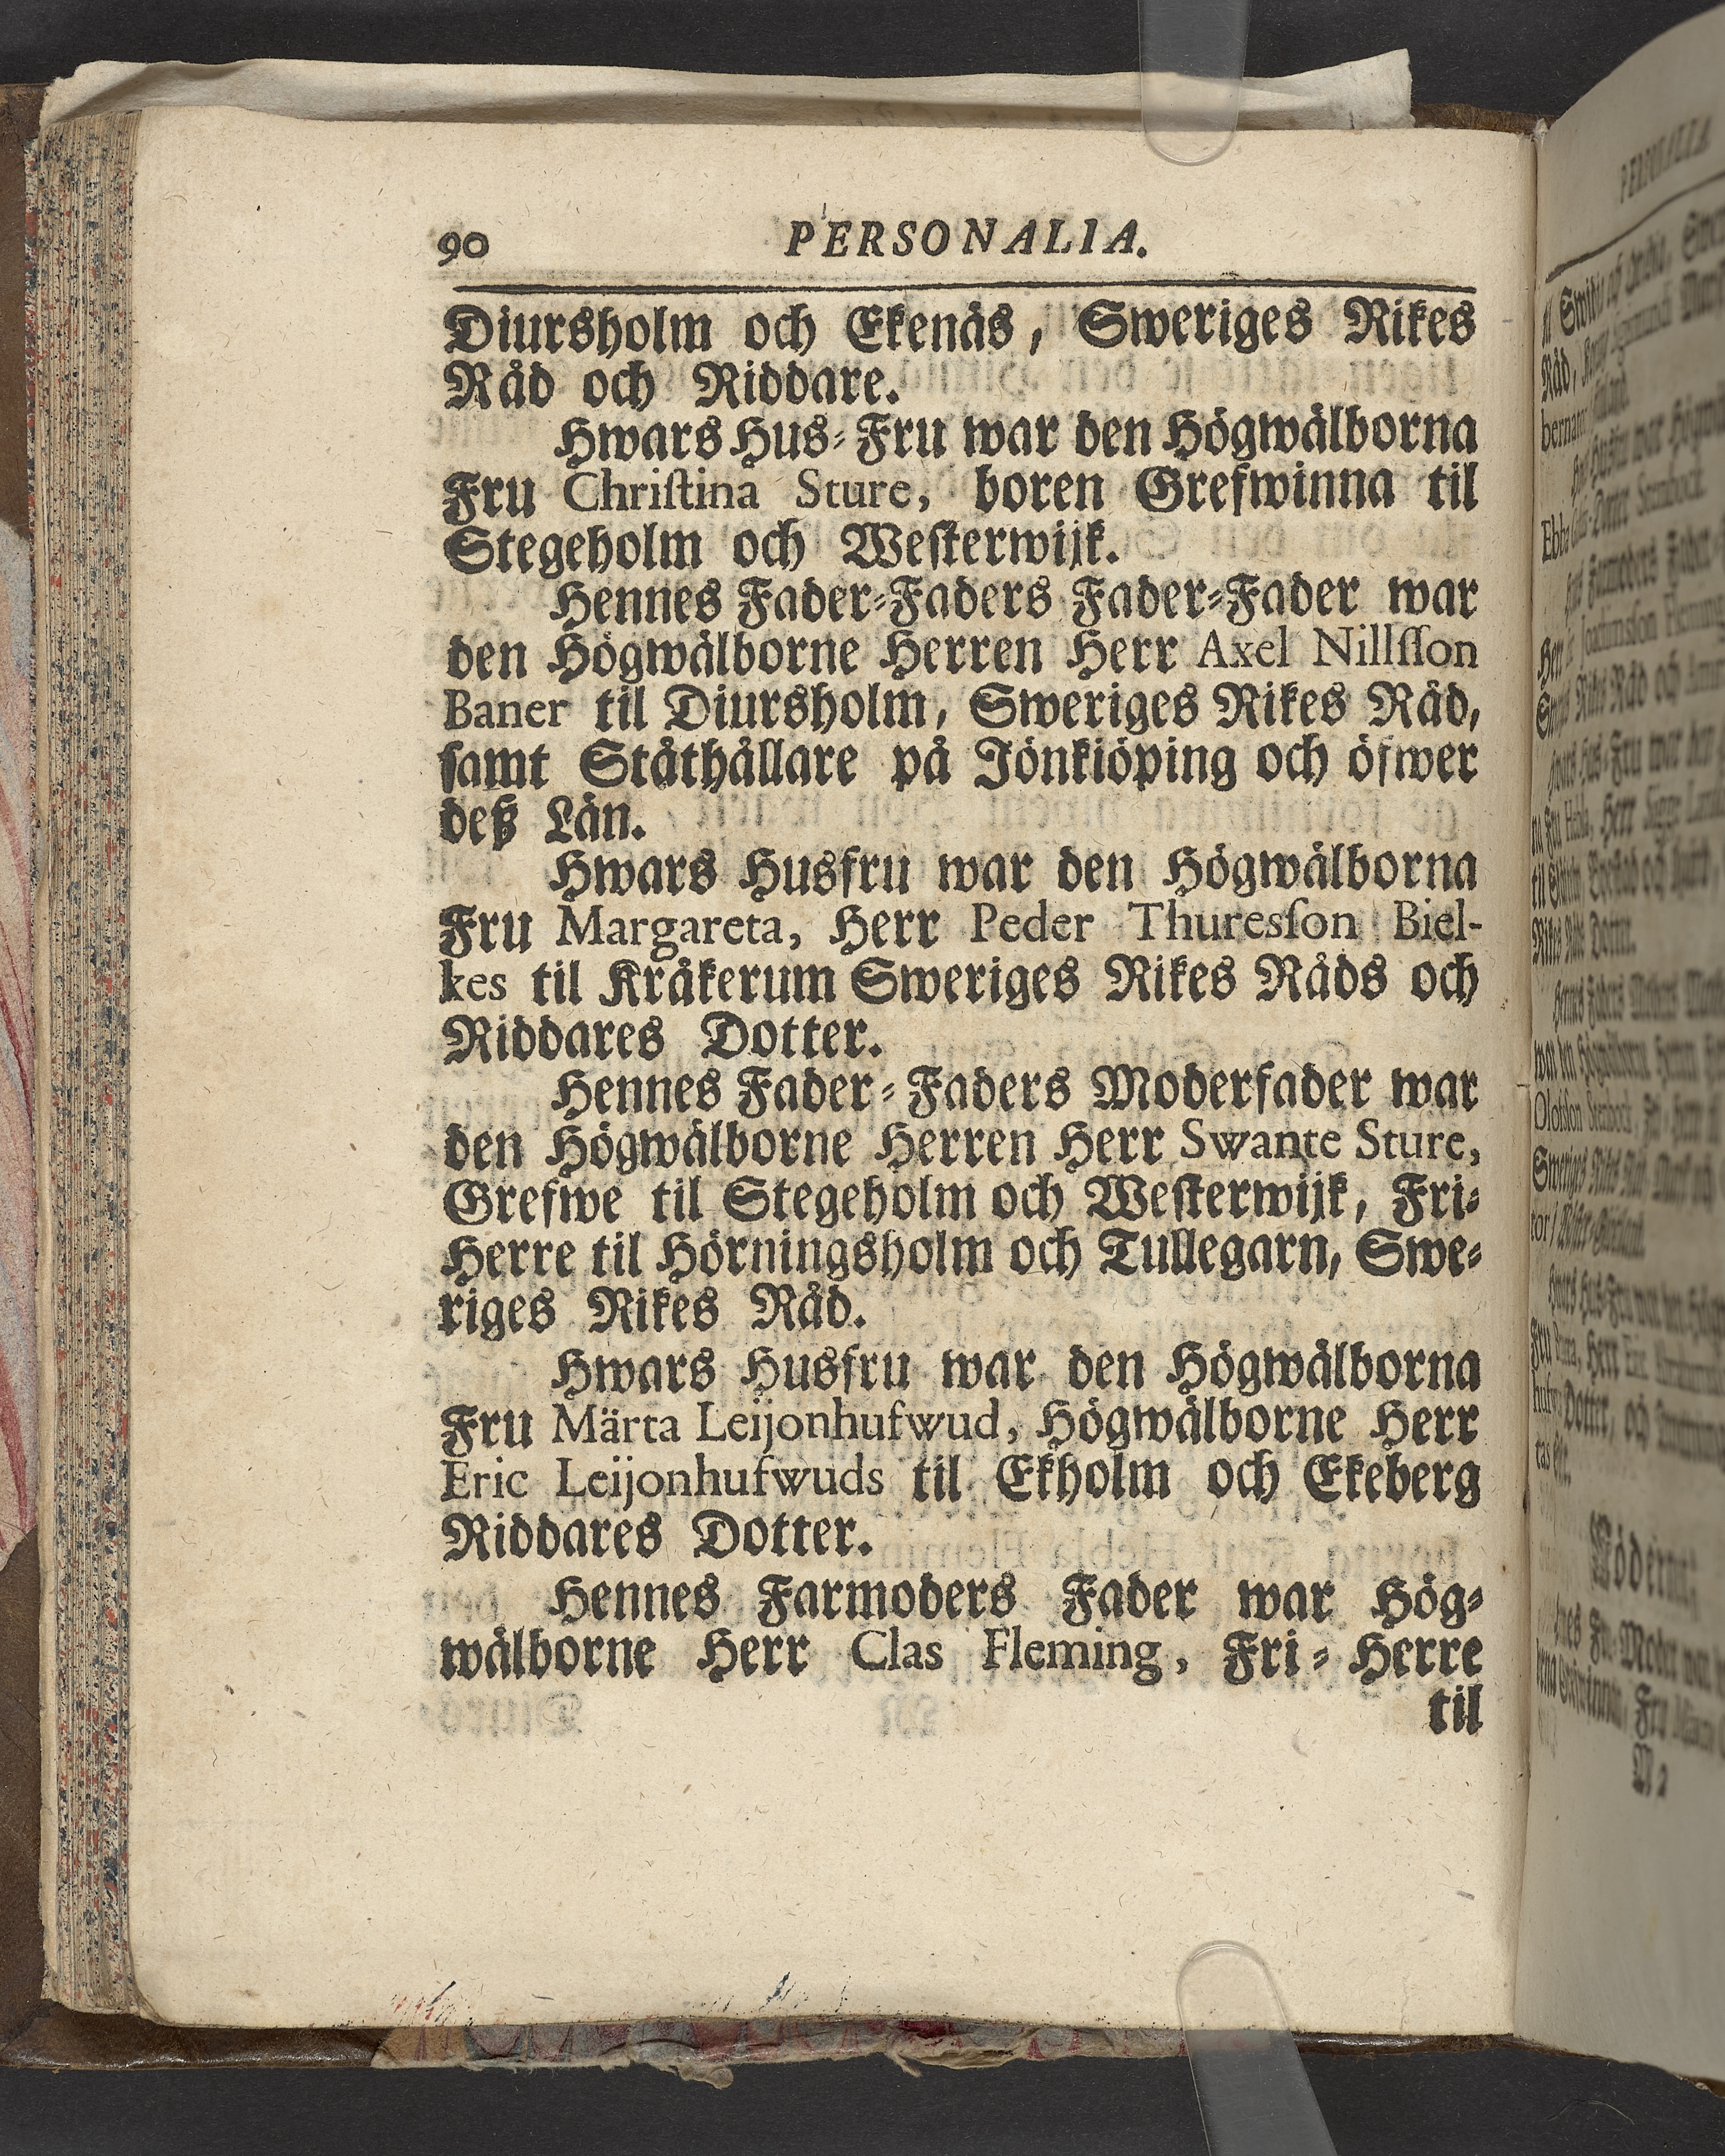 90 PERSONALIA.
Diursholm och Ekenäs, Sweriges Rikes
Råd och Riddare.
Hwars Hus-Fru war den Högwälborna
Fru Chriſtina Sture, boren Grefwinna til
Stegeholm och Weſterwijk.
Hennes Fader-Faders Fader-Fader war
den Högwälborne Herren Herr Axel Nillſſon
Baner til Diursholm, Sweriges Rikes Råd,
ſamt Ståthållare på Jönkiöping och öfwer
deß Län.
Hwars Husfru war den Högwälborna
Fru Margareta, Herr Peder Thuresſon Biel-
kes til Kråkerum Sweriges Rikes Råds och
Riddares Dotter.
Hennes Fader-Faders Moderfader war
den Högwälborne Herren Herr Swante Sture,
Grefwe til Stegeholm och Weſterwijk, Fri-
Herre til Hörningsholm och Tullegarn, Swe-
riges Rikes Råd.
Hwars Husfru war den Högwälborna
Fru Märta Leijonhufwud, Högwälborne Herr
Eric Leijonhufwuds til Ekholm och Ekeberg
Riddares Dotter.
Hennes Farmoders Fader war Hög-
wälborne Herr Clas Fleming, Fri-Herre
til